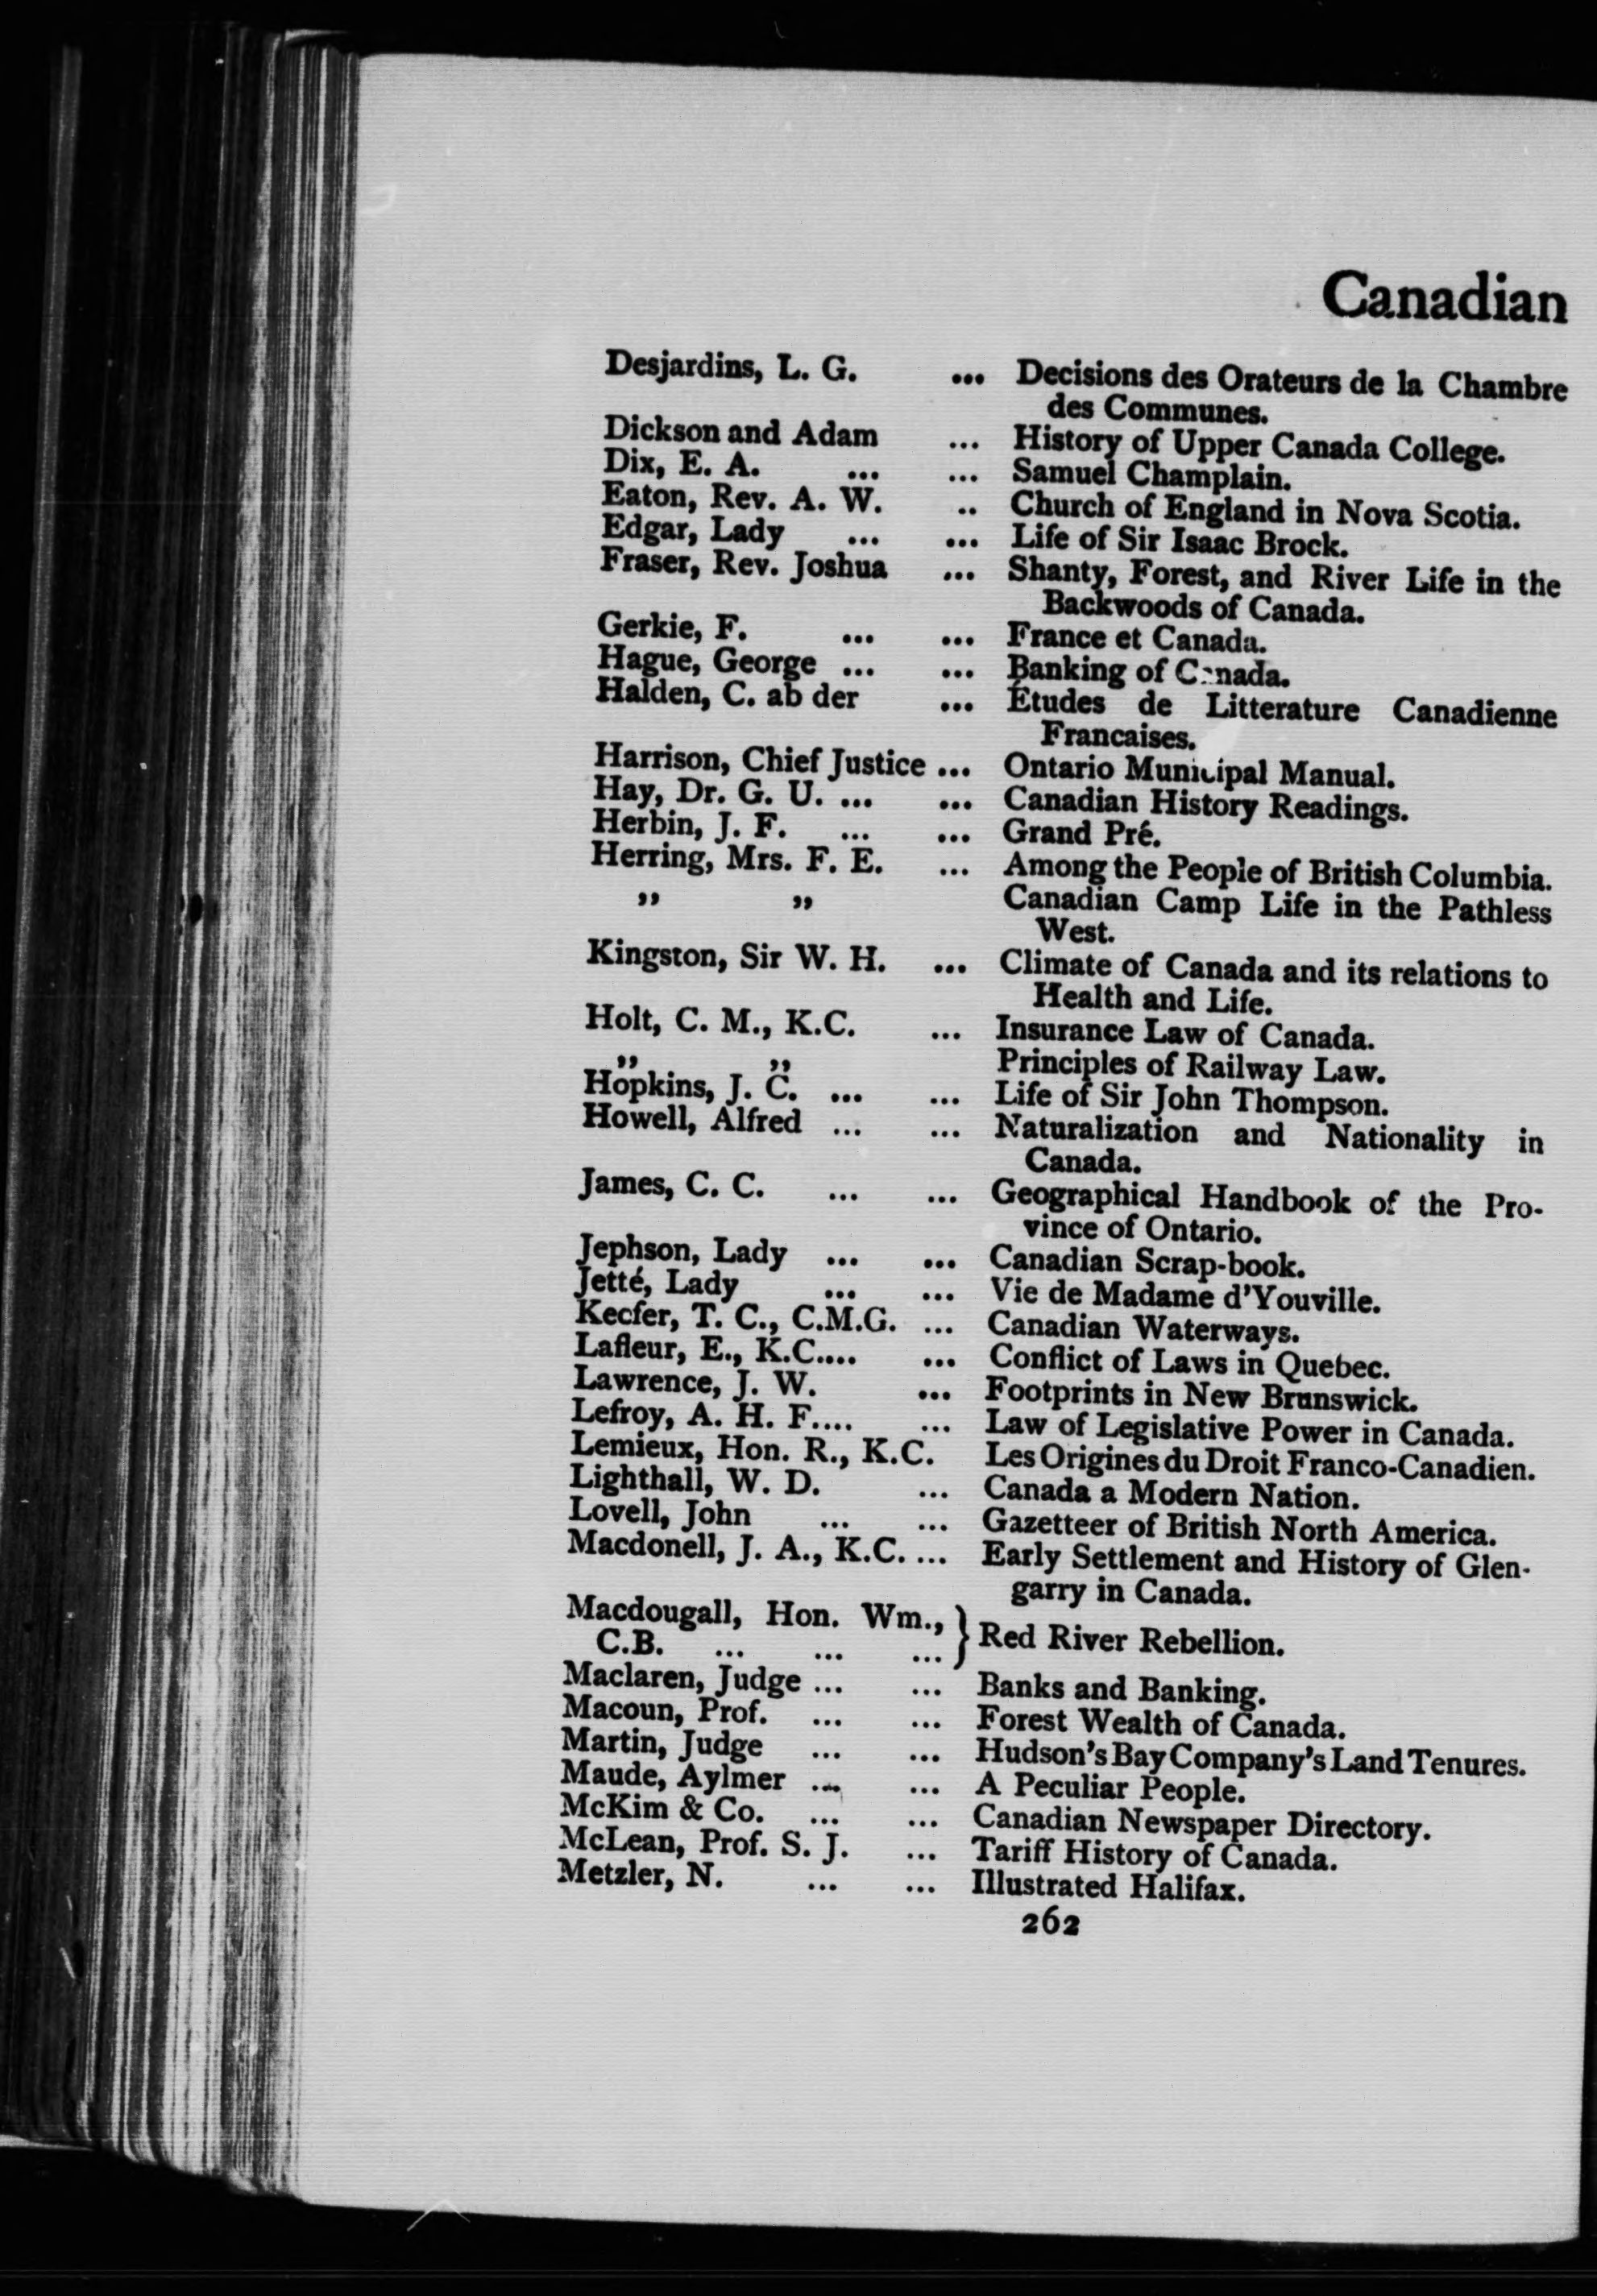 Canadian
Desjardins, L. G. ... Decisions des Orateurs de la Chambre
des Communes.
Dickson and Adam ... History of Upper Canada College.
Dix, E. A. ... ... Samuel Champlain.
Eaton, Rev. A. W. .. Church of England in Nova Scotia.
Edgar, Lady ... ... Life of Sir Isaac Brock.
Fraser, Rev. Joshua ... Shanty, Forest, and River Life in the
Backwoods of Canada.
Gerkie, F. ... ... France et Canada.
Hague, George ... ... Banking of Canada.
Halden, C. ab der ... Études de Litterature Canadienne
Francaises.
Harrison, Chief Justice ... Ontario Municipal Manual.
Hay, Dr. G. U. ... ... Canadian History Readings.
Herbin, J. F. ... ... Grand Pré.
Herring, Mrs. F. E. ... Among the People of British Columbia.
" " Canadian Camp Life in the Pathless
West.
Kingston, Sir W. H. ... Climate of Canada and its relations to
Health and Life.
Holt, C. M., K.C. ... Insurance Law of Canada.
" " Principles of Railway Law.
Hopkins, J. C. ... ... Life of Sir John Thompson.
Howell, Alfred ... ... Naturalization and Nationality in
Canada.
James, C. C. ... ... Geographical Handbook of the Pro-
vince of Ontario.
Jephson, Lady ... ... Canadian Scrap-book.
Jetté, Lady ... ... Vie de Madame d'Youville.
Kecfer, T. C., C.M.G. ... Canadian Waterways.
Lafleur, E., K.C.... ... Conflict of Laws in Quebec.
Lawrence, J. W. ... Footprints in New Brunswick.
Lefroy, A. H. F.... ... Law of Legislative Power in Canada.
Lemieux, Hon. R., K.C. Les Origines du Droit Franco-Canadien.
Lighthall, W. D. ... Canada a Modern Nation.
Lovell, John ... ... Gazetteer of British North America.
Macdonell, J. A., K.C. ... Early Settlement and History of Glen-
garry in Canada.
Macdougall, Hon. Wm., }
C.B. ... ... ... } Red River Rebellion.
Maclaren, Judge ... ... Banks and Banking.
Macoun, Prof. ... ... Forest Wealth of Canada.
Martin, Judge ... ... Hudson's Bay Company's Land Tenures.
Maude, Aylmer ... ... A Peculiar People.
McKim & Co. ... ... Canadian Newspaper Directory.
McLean, Prof. S. J. ... Tariff History of Canada.
Metzler, N. ... ... Illustrated Halifax.
262